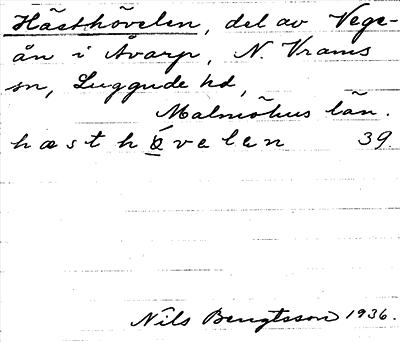 Hästhövelen, del av Vege-
ån i Åvarp, N. Vrams
sn, Luggude hd,
Malmöhus län.
hæsthǿvelen 39.
Nils Bengtsson 1936.